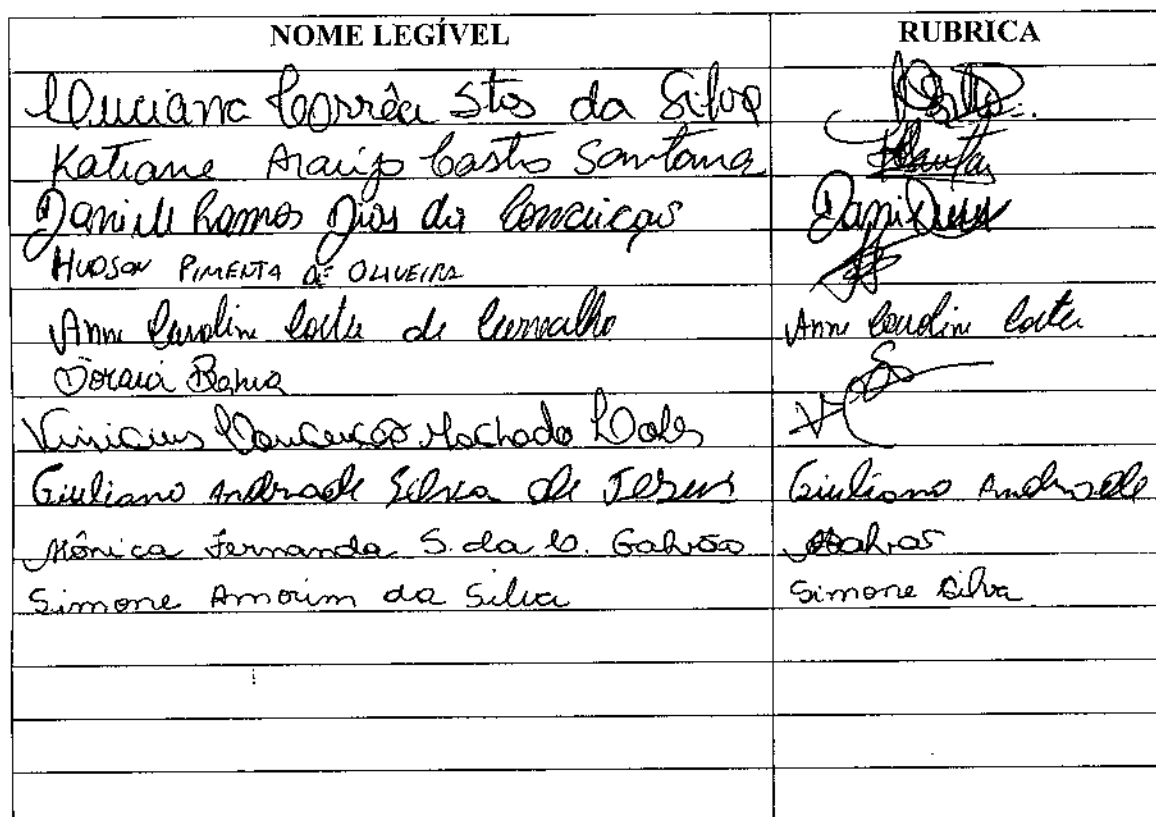 NOME LEGÍVEL RUBRICA
Luciana Corrêa Stos da Silva
Katiane Araújo Castro Santana
Daniele Ramos Dias da Conceição Dani
HUDSON PIMENTA DE OLIVEIRA
Anne Caroline Costa de Carvalho Anne Caroline Costa
Soraia Bahia
Vinicius Conceição Machado
Giuliano Andrade Silva de Jesus Giuliano Andrade
Mônica Fernanda S. da C. Galvão Galvão
Simone Amorim da Silva Simone Silva